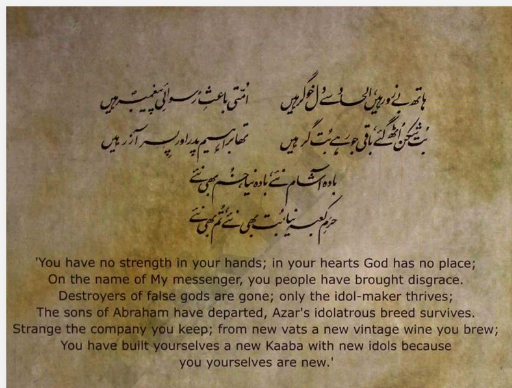 ہاتھ بے زور ہیں، الحاد سے دل خوگر ہیں اُمّتی باعثِ رسوائیِ پیغمبرؐ ہیں
بُت شکن اٹھ گئے، باقی جو رہے بُت گر ہیں تھا براہیم پدر اور پسر آزر ہیں
بادہ آشام نئے، بادہ نیا، خم بھی نئے
حرمِ کعبہ نیا، بُت بھی نئے، تُم بھی نئے
'You have no strength in your hands; in your hearts God has no place;
On the name of My messenger, you people have brought disgrace.
Destroyers of false gods are gone; only the idol-maker thrives;
The sons of Abraham have departed, Azar's idolatrous breed survives.
Strange the company you keep; from new vats a new vintage wine you brew;
You have built yourselves a new Kaaba with new idols because
you yourselves are new.'